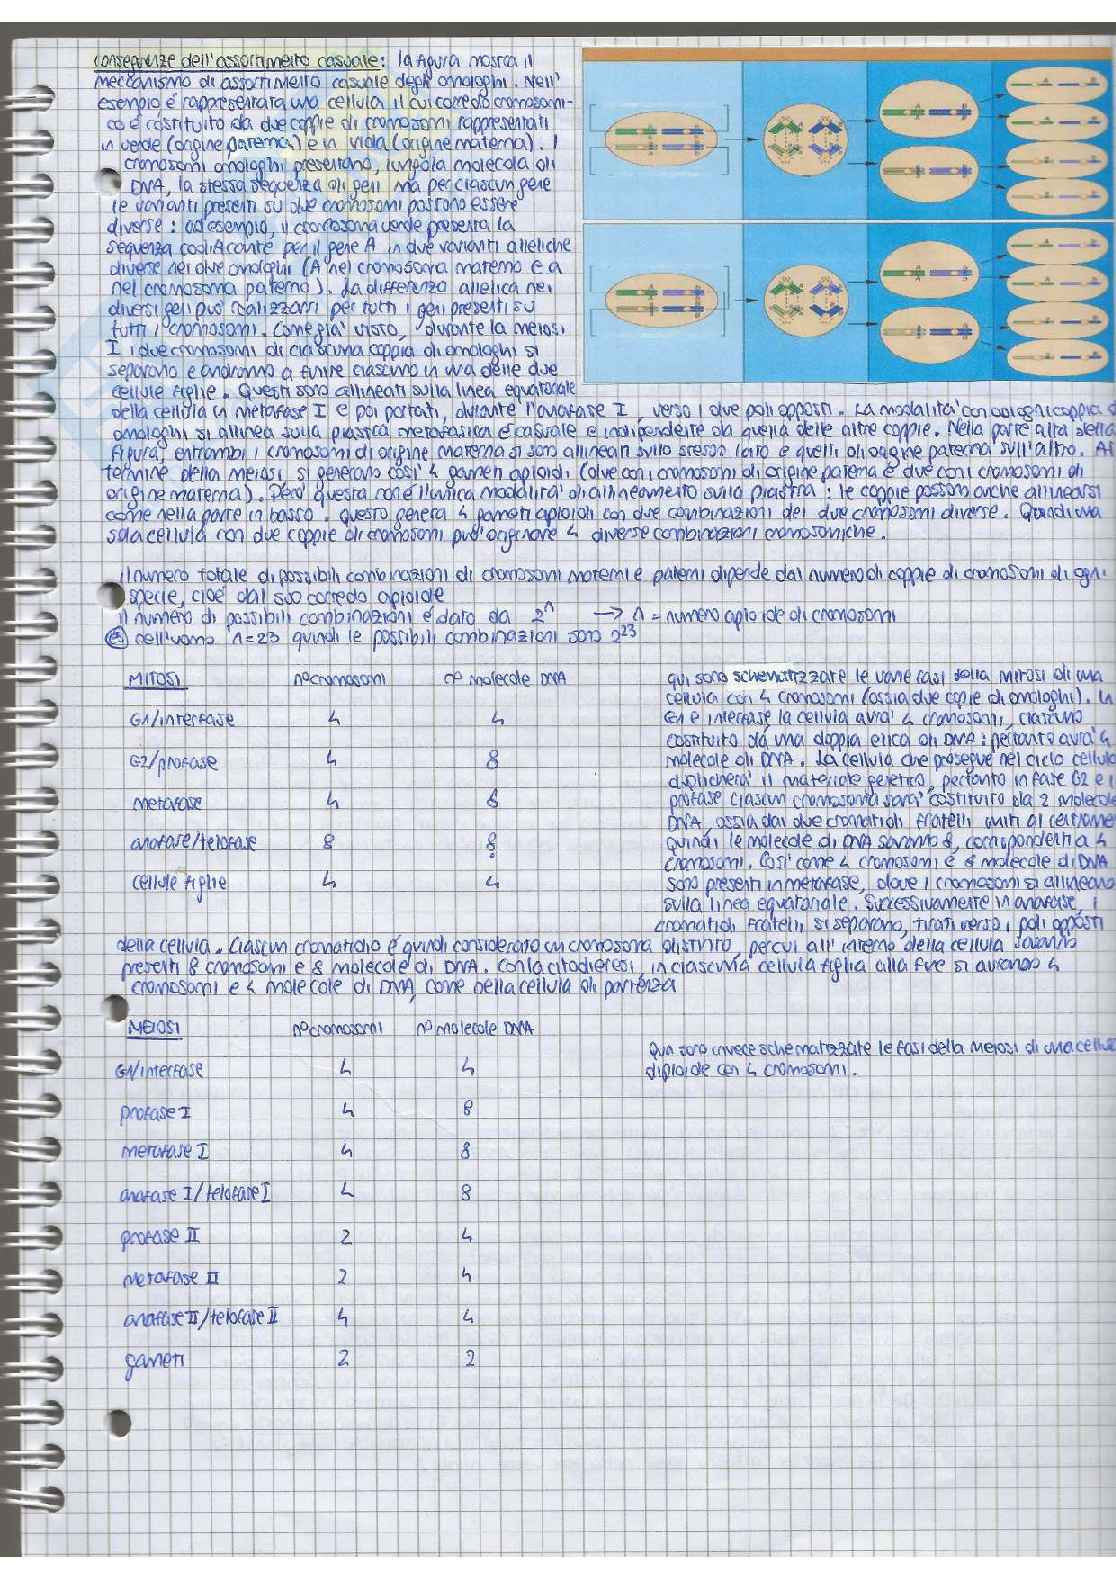 conseguenze dell'assortimento casuale: la figura mostra il
meccanismo di assortimento casuale degli omologhi. Nell'
esempio è rappresentata una cellula il cui corredo cromosomi-
co è costituito da due coppie di cromosomi rappresentati
in verde (origine paterna) e in viola (origine materna). I
cromosomi omologhi presentano, lungo la molecola di
DNA, la stessa sequenza di geni ma per ciascun gene
le varianti presenti su due cromosomi possono essere
diverse: ad esempio, il cromosoma verde presenta la
sequenza codificante per il gene A in due varianti alleliche
diverse nei due omologhi (A nel cromosoma materno e a
nel cromosoma paterno). La differenza allelica nei
diversi geni può realizzarsi per tutti i geni presenti su
tutti i cromosomi. Come già visto, durante la meiosi
I i due cromosomi di ciascuna coppia di omologhi si
separano e andranno a finire ciascuno in una delle due
cellule figlie. Questi sono allineati sulla linea equatoriale
della cellula in metafase I e poi portati, durante l'anafase I, verso i due poli opposti. La modalità con cui ogni coppia d
omologhi si allinea sulla piastra metafasica è casuale e indipendente da quella delle altre coppie. Nella parte alta della
figura, entrambi i cromosomi di origine materna si sono allineati sullo stesso lato e quelli di origine paterna sull'altro. Al
termine della meiosi si generano così 4 gameti aploidi (due con i cromosomi di origine paterna e due con i cromosomi di
origine materna). Però questa non è l'unica modalità di allineamento sulla piastra: le coppie possono anche allinearsi
come nella parte in basso. questo genera 4 gameti aploidi con due combinazioni dei due cromosomi diverse. Quindi una
sola cellula con due coppie di cromosomi può originare 4 diverse combinazioni cromosomiche.
Il numero totale di possibili combinazioni di cromosomi materni e paterni dipende dal numero di coppie di cromosomi di ogni
specie, cioè dal suo corredo aploide
il numero di possibili combinazioni è dato da 2ⁿ → n = numero aploide di cromosomi
es nell'uomo n=23 quindi le possibili combinazioni sono 2²³
MITOSI n°cromosomi n° molecole DNA
G1/interfase 4 4
G2/profase 4 8
metafase 4 8
anafase/telofase 8 8
cellule figlie 4 4
qui sono schematizzate le varie fasi della mitosi di una
cellula con 4 cromosomi (ossia due copie di omologhi). In
G1 e interfase la cellula avrà 4 cromosomi, ciascuno
costituito da una doppia elica di DNA: pertanto avrà 4
molecole di DNA. La cellula che prosegue nel ciclo cellula
duplicherà il materiale genetico, pertanto in fase G2 e
profase ciascun cromosoma sarà costituito da 2 molecole
DNA, ossia dai due cromatidi fratelli uniti al centrome
quindi le molecole di DNA saranno 8, corrispondenti a 4
cromosomi. Così come 4 cromosomi e 8 molecole di DNA
sono presenti in metafase, dove i cromosomi si allineano
sulla linea equatoriale. Successivamente in anafase, i
cromatidi fratelli si separano, tirati verso i poli opposti
della cellula. Ciascun cromatidio è quindi considerato un cromosoma distinto, per cui all'interno della cellula saranno
presenti 8 cromosomi e 8 molecole di DNA. Con la citodieresi, in ciascuna cellula figlia alla fine si avranno 4
cromosomi e 4 molecole di DNA, come nella cellula di partenza
MEIOSI n°cromosomi n° molecole DNA
G1/interfase 4 4
profase I 4 8
metafase I 4 8
anafase I/telofase I 4 8
profase II 2 4
metafase II 2 4
anafase II/telofase II 4 4
gameti 2 2
Qua sono invece schematizzate le fasi della meiosi di una cellula
diploide con 4 cromosomi.